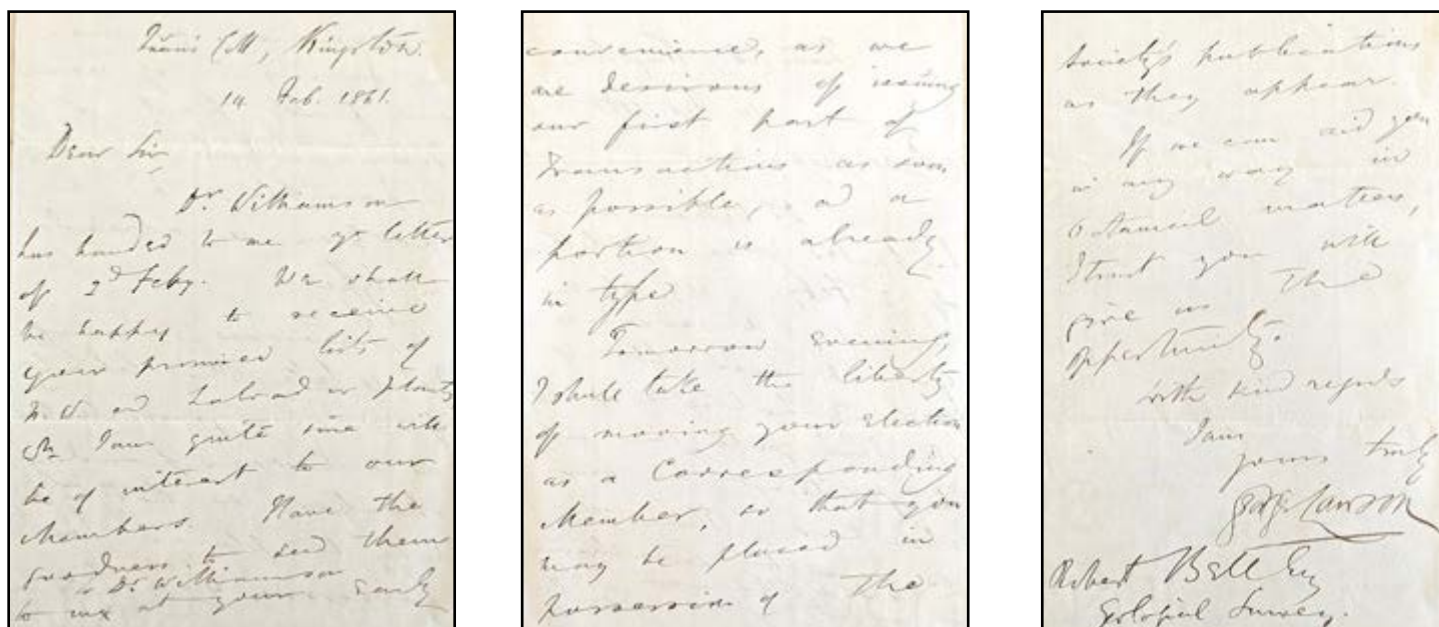 Queen's Coll, Kingston.
14 Feb. 1861.
Dear Sir,
Dr. Williamson
has handed to me yr letter
of 2d Feby. We shall
be happy to receive
your promised lists of
and Labrador plants
I am quite sure will
be of interest to our
Members. Have the
goodness to send them
to Dr Williamson
to me at your early
convenience, as we
are desirous of issuing
our first part of
Transactions as soon
as possible, ad a
portion is already
in type
Tomorrow Evening,
I shall take the liberty
of moving your Election
as a Corresponding
Member, so that you
may be placed in
possession of the
Society's publications
as they appear.
If we can aid you
in any way in
botanical matters,
I trust you will
give us the
opportunity.
With kind regards
I am
yours truly
George Lawson
Robert Bell Esq
Geological Survey.